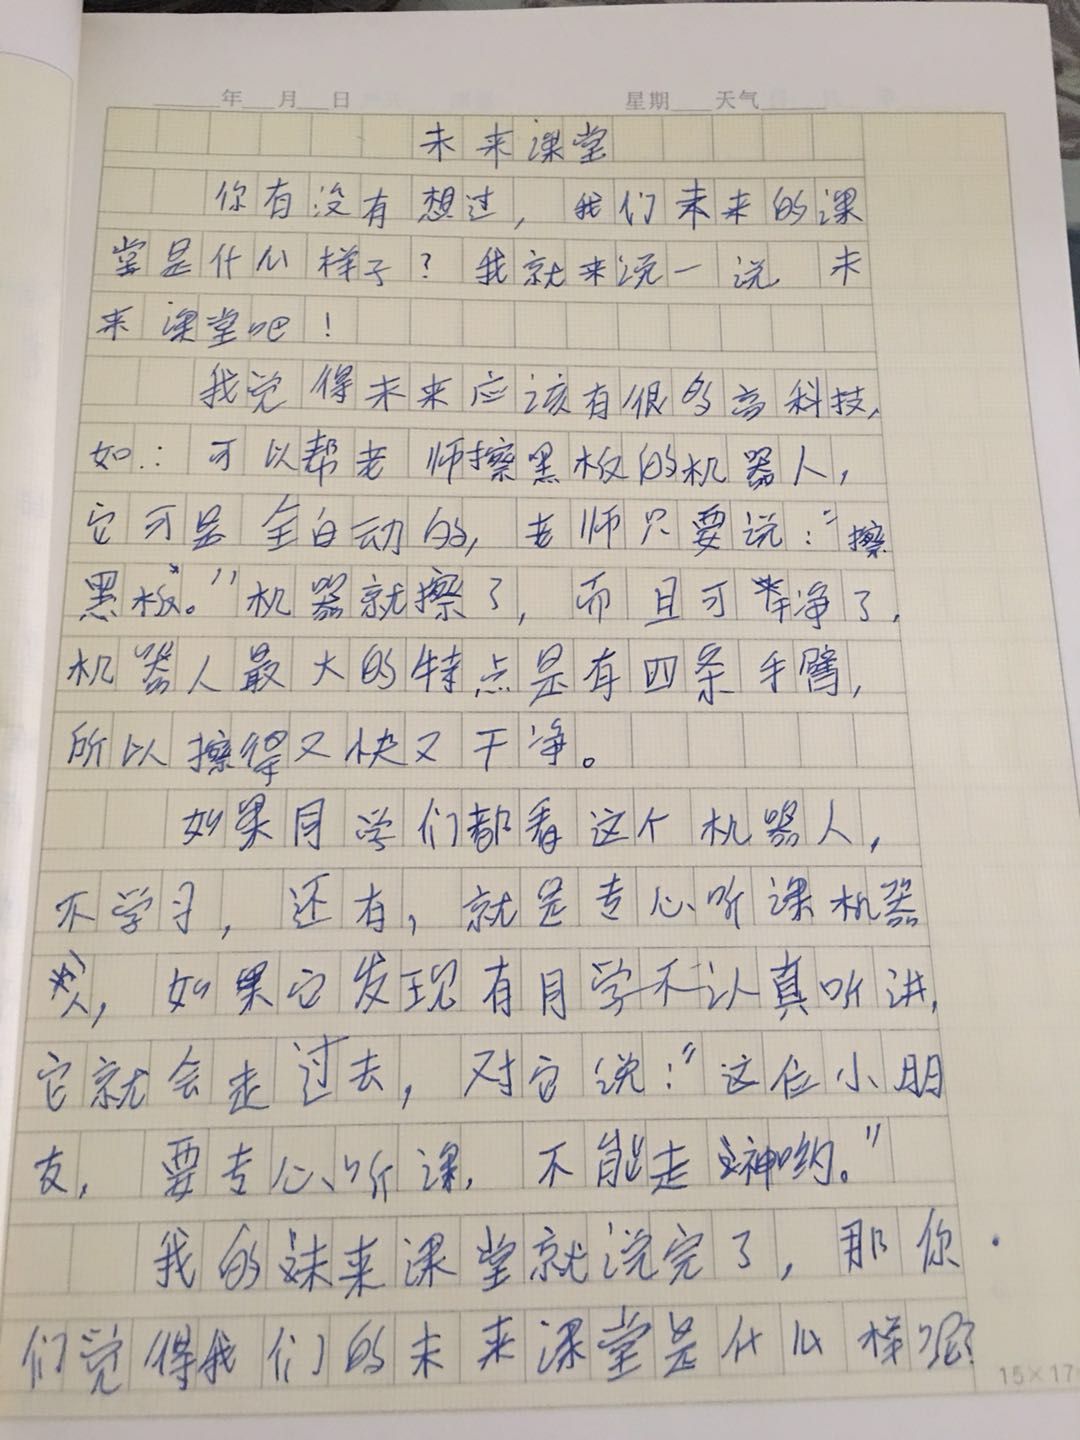 年 月 日 星期 天气
未来课堂
你有没有想过，我们未来的课
堂是什么样子？我就来说一说 未
来课堂吧！
我觉得未来应该有很多高科技，
如：可以帮老师擦黑板的机器人，
它可是全自动的，老师只要说：“擦
黑板。”机器就擦了，而且可净了，
机器人最大的特点是有四条手臂，
所以擦得又快又干净。
如果同学们都看这个机器人，
不学习，还有，就是专心听课机器
人，如果它发现有同学不认真听讲，
它就会走过去，对它说：“这位小朋
友，要专心听课，不能走神哟。”
我的未来课堂就说完了，那你
们觉得我们的未来课堂是什么样呢？
15×17